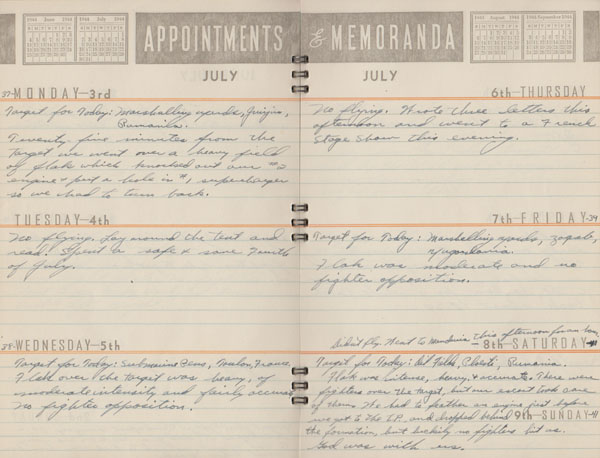 1944 June 1944
1944 July 1944
APPOINTMENTS
JULY
37 MONDAY—3rd
Target for Today: Marshalling yards, Giurgiu,
Rumania.
Twenty five minutes from the
target we went over a heavy field
of flak which knocked out our #2
engine & put a hole in #1 supercharger
so we had to turn back.
TUESDAY—4th
No flying. Lay around the tent and
read. Spent a safe & sane Fourth
of July.
WEDNESDAY—5th
Target for Today: Submarine Pens, Toulon, France.
Flak over the target was heavy, of
moderate intensity and fairly accurate
No fighter opposition.
& MEMORANDA
1944 August 1944
1944 September 1944
JULY
6th—THURSDAY
No flying. Wrote three letters this
afternoon and went to a French
Stage Show this evening.
7th—FRIDAY—39
Target for Today: Marshalling yards, Zagreb,
Yugoslavia.
Flak was moderate and no
fighter opposition.
Didn't fly. Went to Manduria this afternoon for an hour.
8th—SATURDAY
Target for Today: Oil Fields, Ploesti, Rumania.
Flak was intense, heavy, & accurate. There were
fighters over the target, but our escort took care
of them. We had to feather an engine just before
we got to the I.P. and dropped behind
9th—SUNDAY
the formation, but luckily no fighters hit us.
God was with us.